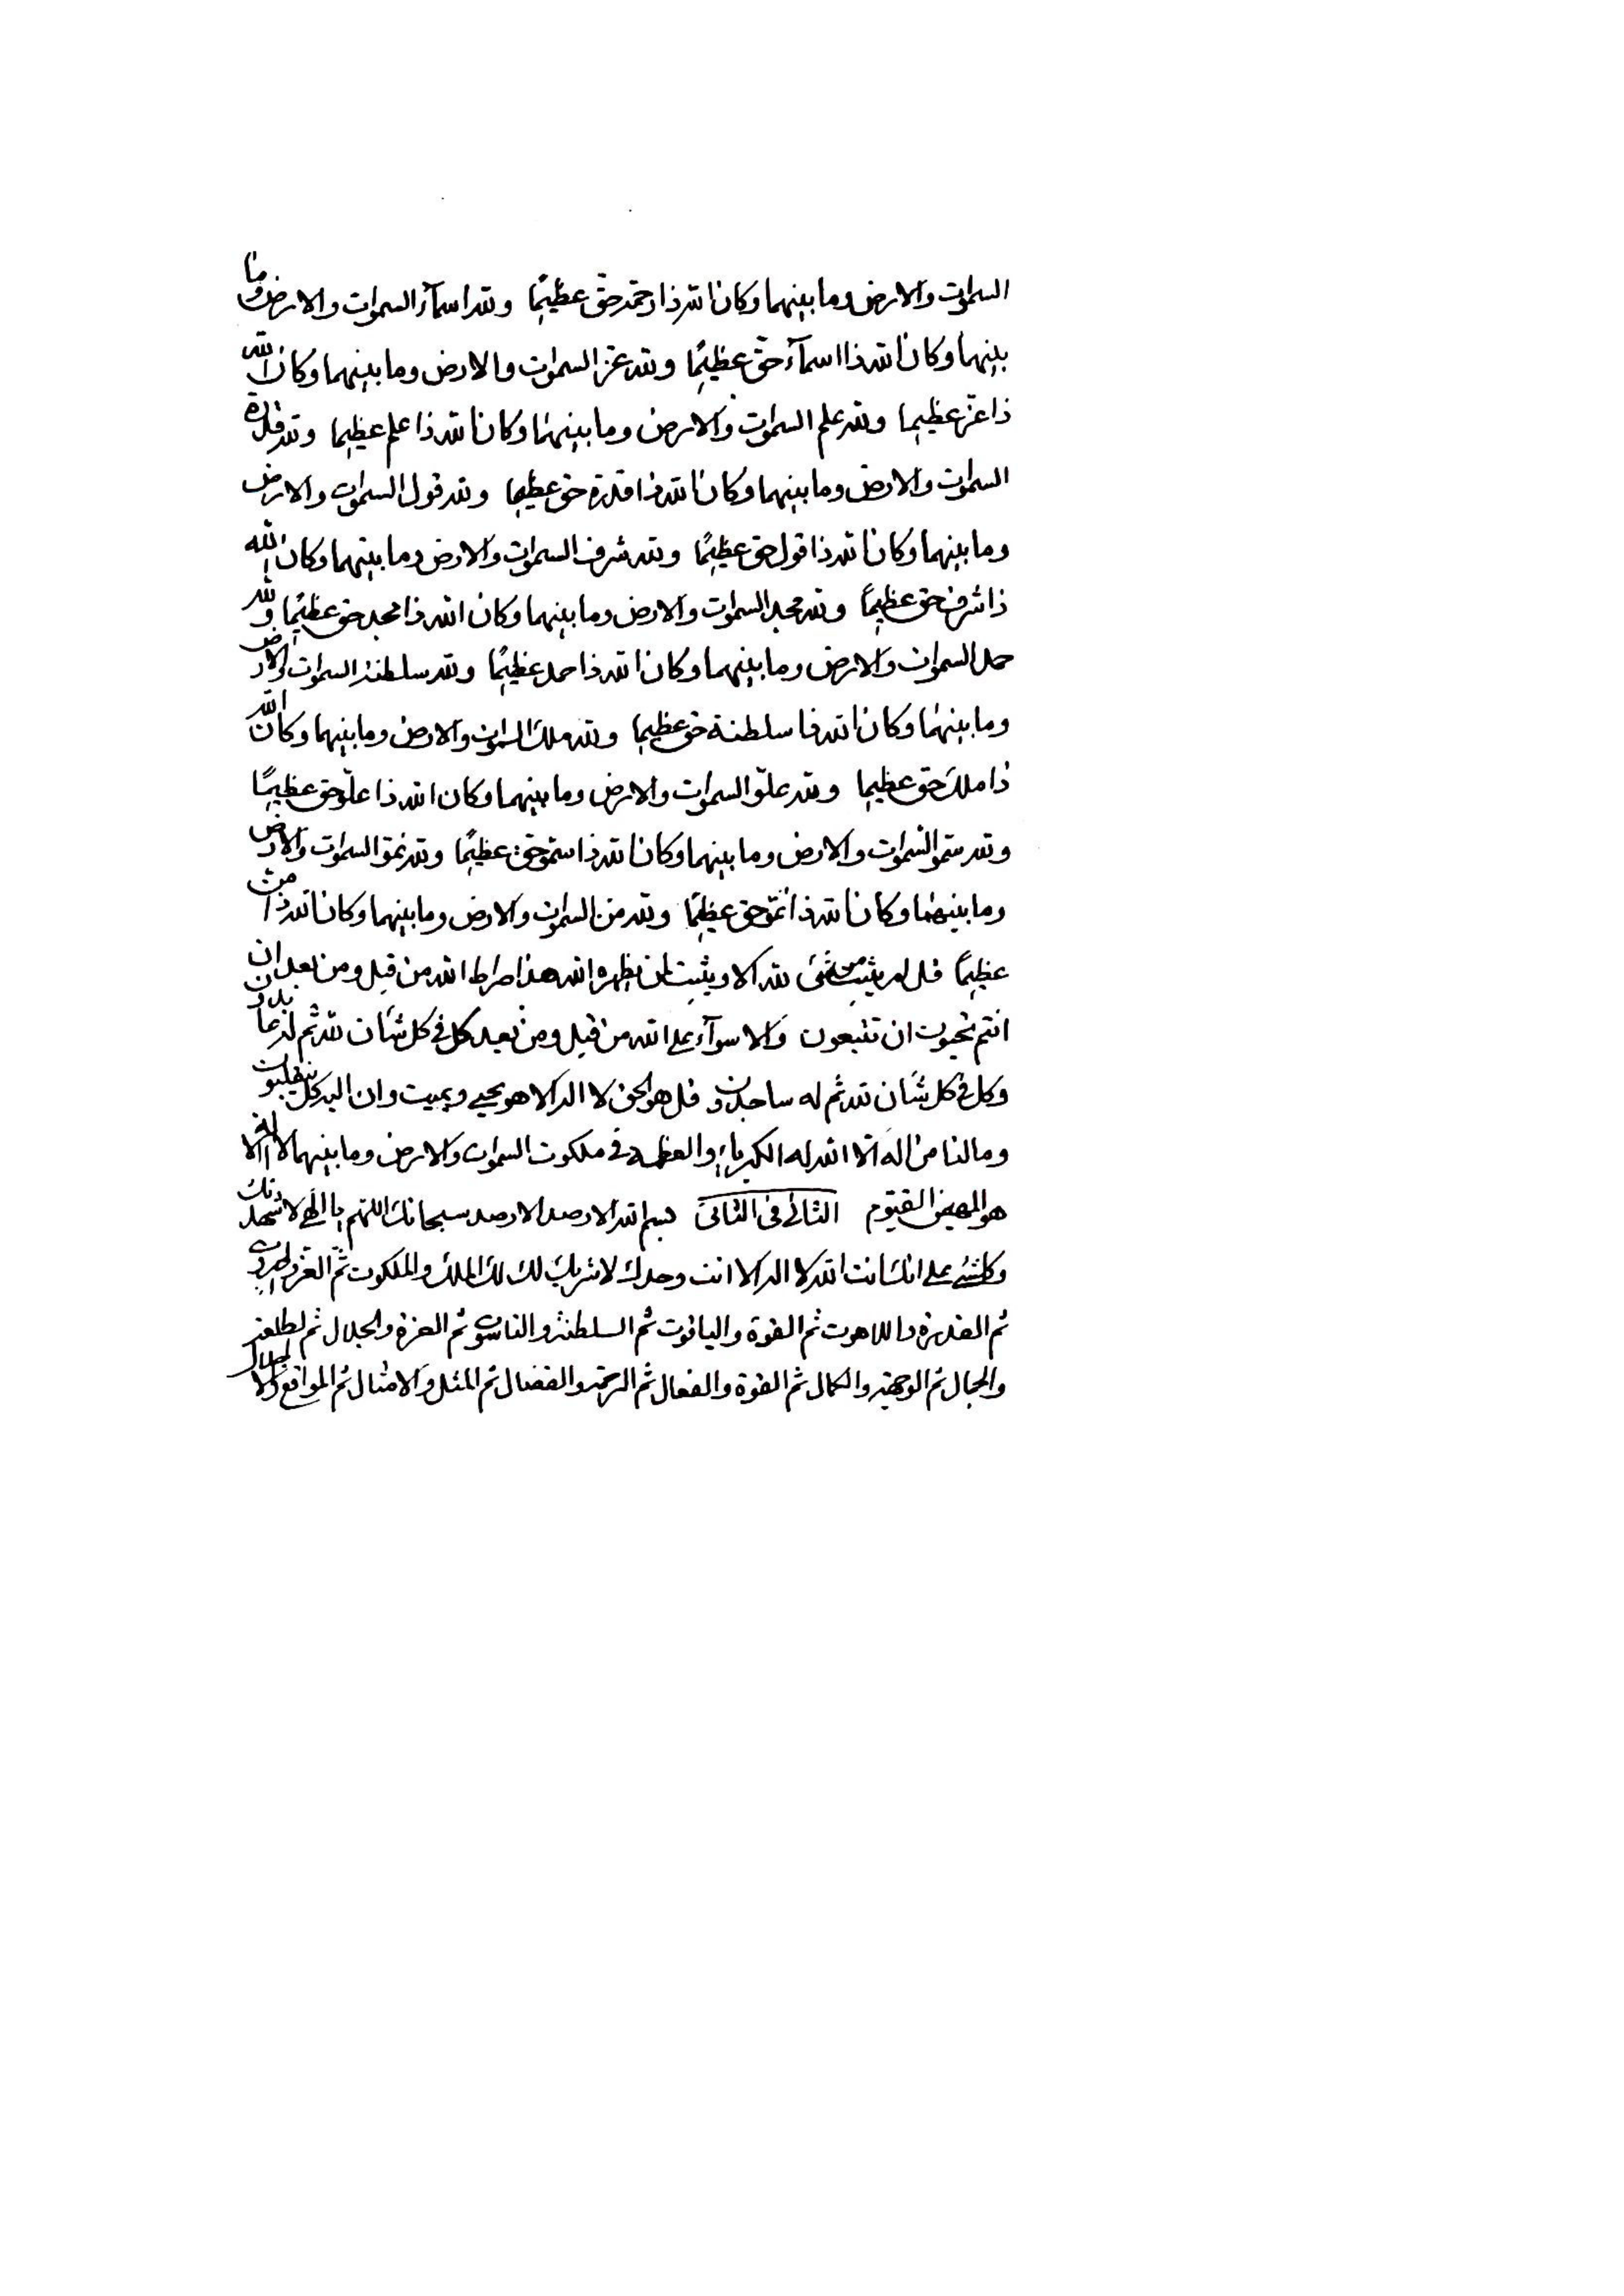 السموات والارض وما بينهما وكان الله ذا رحمة حق عظيمًا ولله اسمآء السموات والارض وما
بينهما وكان الله ذا اسمآء حق عظيمًا ولله عز السموات والارض وما بينهما وكان الله
ذا عز عظيما ولله علم السموات والارض وما بينهما وكان الله ذا علم عظيما ولله قدرة
السموات والارض وما بينهما وكان الله ذا قدرة حق عظيما ولله قول السموات والارض
وما بينهما وكان الله ذا قول حق عظيمًا ولله شرف السموات والارض وما بينهما وكان الله
ذا شرف حق عظيمًا ولله مجد السموات والارض وما بينهما وكان الله ذا مجد حق عظيمًا ولله
حمد السموات والارض وما بينهما وكان الله ذا حمد عظيمًا ولله سلطنة السموات والارض
وما بينهما وكان الله ذا سلطنة حق عظيما ولله ملك السموات والارض وما بينهما وكان الله
ذا ملك حق عظيما ولله علوّ السموات والارض وما بينهما وكان الله ذا علوّ حق عظيمًا
ولله سموّ السموات والارض وما بينهما وكان الله ذا سموّ حق عظيمًا ولله نموّ السموات والارض
وما بينهما وكان الله ذا نموّ حق عظيمًا ولله من السموات والارض وما بينهما وكان الله ذا من
عظيمًا قل لم يثبت من شئ لله الا ويثبت لمن يظهره الله هذا صراط الله من قبل ومن بعد ان
انتم تحبون ان تتبعون والا سوآء على الله من قبل ومن بعد كل في كل شأن لله ثم له عابدون
وكل في كل شأن لله ثم له ساجدون قل هو الحق لا اله الا هو يحيي ويميت وان اليه كل ينقلبون
وما لنا من اله الا الله له الكبرياء والعظمة في ملكوت السموات والارض وما بينهما لا اله الا
هو المهيمن القيّوم الثاني في الثاني بسم الله الارصد الارصد سبحانك اللهم يا الهي لاشهدنك
وكلشئ على انك انت الله لا اله الا انت وحدك لا شريك لك لك الملك والملكوت ثم العز والجبروت
ثم القدرة واللاهوت ثم القوة والياقوت ثم السلطنة والناسوت ثم العزة والجلال ثم الطلعة
والجمال ثم الوجهة والكمال ثم القوة والفعال ثم الرحمة والفضال ثم المثل والامثال ثم المواقع والاجلال